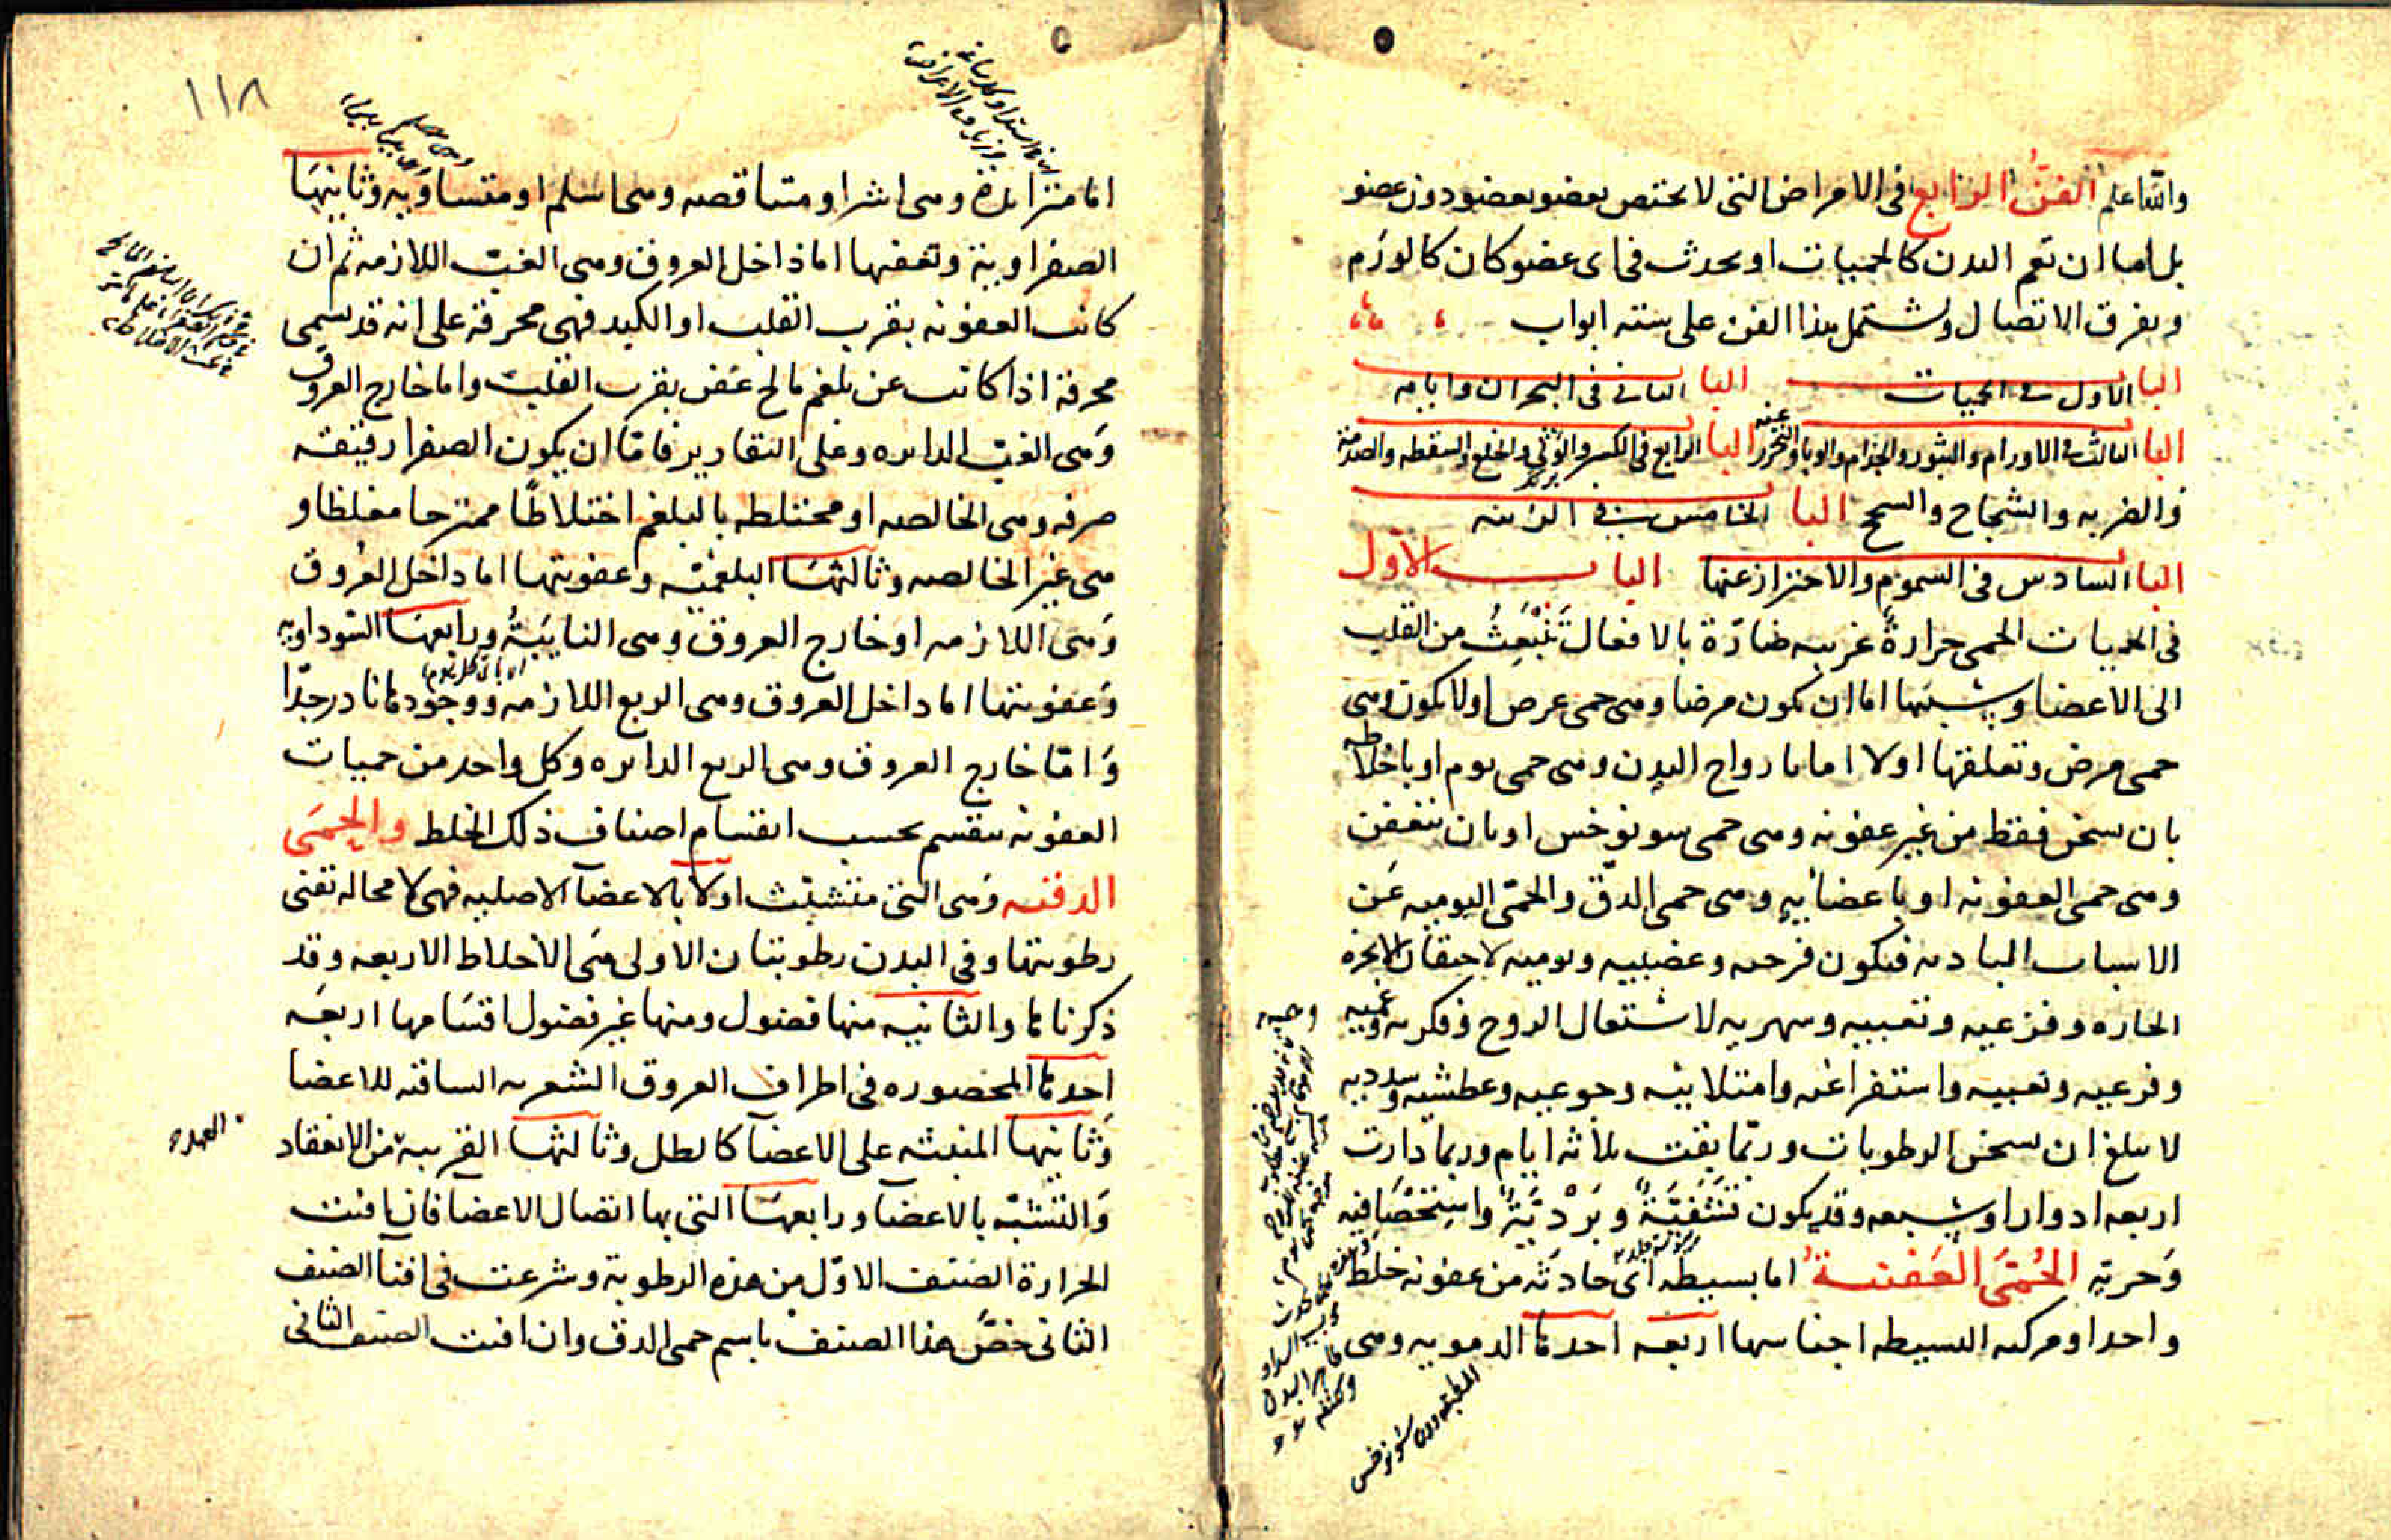 والله اعلم الفن الرابع فى الامراض التى لا يختص بعضو بعضو دون عضو
بل اما ان تعم البدن كالحميات او يحدث فى اى عضو كان كالورم
وتفرق الاتصال ويشتمل هذا الفن على ستة ابواب
البا الاول فى الحميات البا الثانى فى البحران وايامه
البا الثالث فى الاورام والبثور والجذام والوبا والتحرز عنه البا الرابع فى الكسر والوثى والخلع والسقطه والصدمة
والضربه والشجاج والسحج البا الخامس فى الزينه
البا السادس فى السموم والاحتراز عنها الباب الاول
فى الحميات الحمى حرارة غريبه ضارة بالافعال تنبعث من القلب
الى الاعضا وسببها اما ان يكون مرضا وهى حمى عرض او لا يكون وهى
حمى مرض وتعلقها اولا اما بارواح البدن وهى حمى يوم او باخلاطه
بان يسخن فقط من غير عفونه وهى حمى سونوخس او بان تتعفن
وهى حمى العفونه او باعضائيه وهى حمى الدق والحمى اليوميه عن
الاسباب البادىه فتكون فرحىه وغضبيه ونوميه لاحتقان الابخره
الحاره وفزعيه وتعبيه وسهريه لاشتعال الروح وفكريه وغميه
وفزعيه وتعبيه واستفراغىه وامتلائيه وجوعيه وعطشيه وسدديه
لا يبلغ ان يسخن الرطوبات وربما بقت ثلاثه ايام وربما دارت
اربعه ادوار او سبعه وقد يكون تشفيّة وبرديّة واستحصافيه
وحريه الحمى العفنيه اما بسيطه اى حادثه من عفونه خلط
واحد او مركبه البسيطه اجناسها اربعه احدها الدمويه وهى
المطبقه دون سونوخس
١١٨
اما متزايدة وهى اشر او متناقصه وهى اسلم او متساويه وثانيها
الصفراوية وتعفنها اما داخل العروق وهى الغب اللازمه ثم ان
كانت العفونه بقرب القلب او الكبد فهى محرقة على انه قد تسمى
محرقة اذا كانت عن بلغم مالح عفن بقرب القلب واما خارج العروق
وهى الغب الدايره وعلى التقادير فاما ان يكون الصفرا رقيقه
صرفه وهى الخالصه او مختلطه بالبلغم اختلاطا ممتزجا مغلظا و
هى غير الخالصه وثالثها البلغميه وعفونتها اما داخل العروق
وهى اللازمه او خارج العروق وهى النايبة ورابعها السوداويه
وعفونتها اما داخل العروق وهى الربع اللازمه ووجودها نادر جدا
واما خارج العروق وهى الربع الدايره وكل واحد من حميات
العفونه ينقسم بحسب انقسام اصناف ذلك الخلط والحمى
الدقيه وهى التى متشبث اولا بالاعضآ الاصليه فهى لا محاله تفنى
رطوبتها وفى البدن رطوبتان الاولى هى الاخلاط الاربعه وقد
ذكرناها والثانيه منها فضول ومنها غير فضول اقسامها اربعه
احدها المحصوره فى اطراف العروق الشعريه الساقيه للاعضا
وثانيها المنبثه على الاعضآ كالطل وثالثها القريبه من الانعقاد
والتشبه بالاعضآ ورابعها التى بها اتصال الاعضا فان افنت
الحرارة الصنف الاول من هذه الرطوبة وشرعت فى افنآ الصنف
الثانى خصّ هذا الصنف باسم حمى الدق وان افنت الصنف الثانى